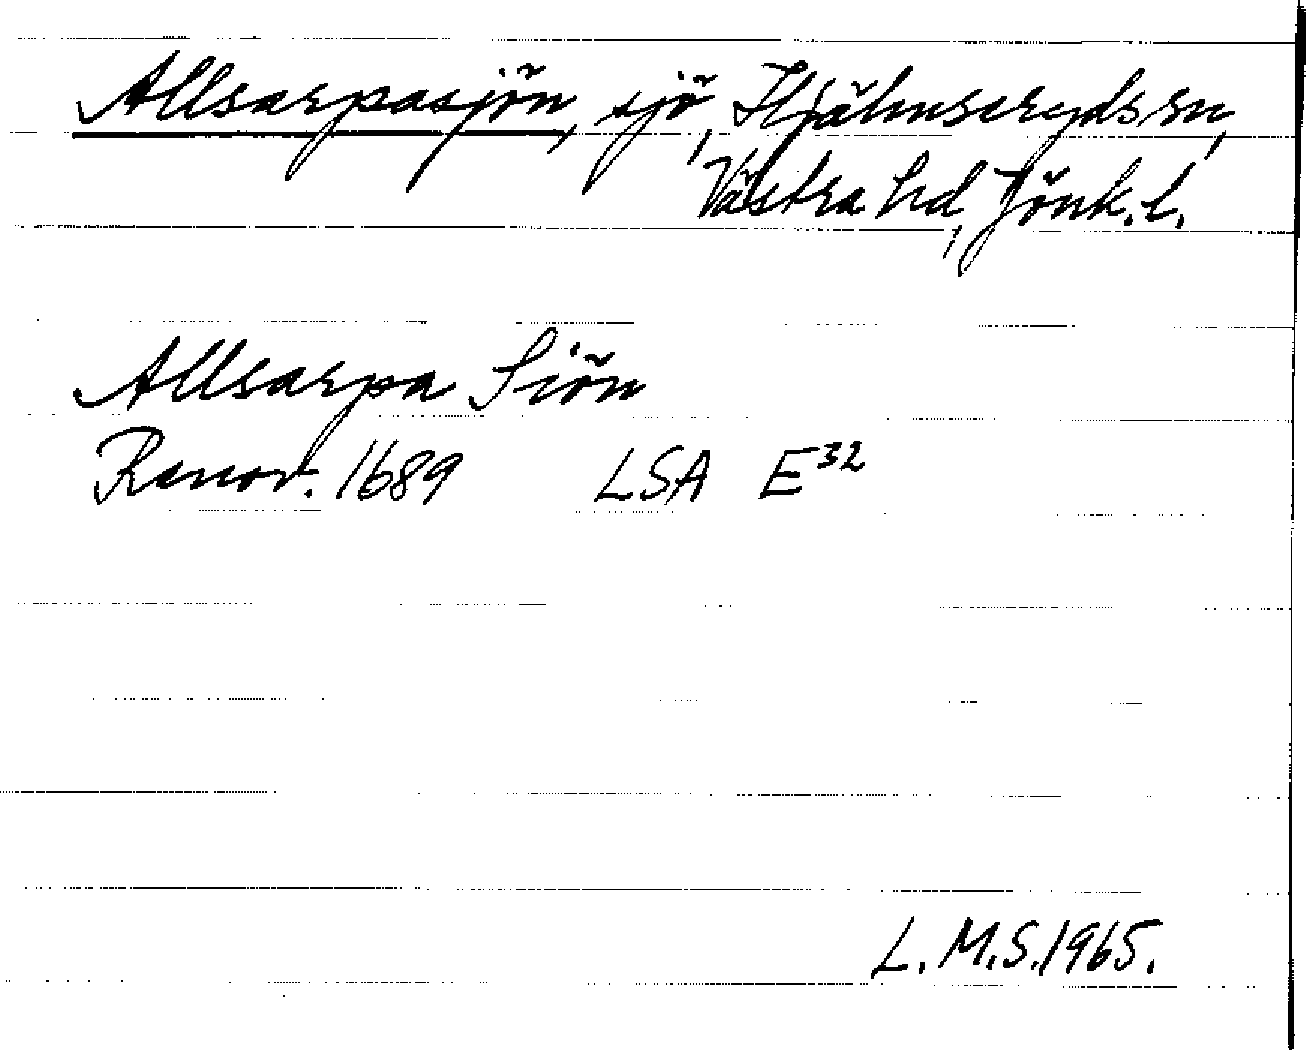 Allsarpasjön, sjö, Hjälmseryds sn,
Västra hd, Jönk. l.
Allsarpa Siön
Renov. 1689 LSA E³²
L. M. S. 1965.